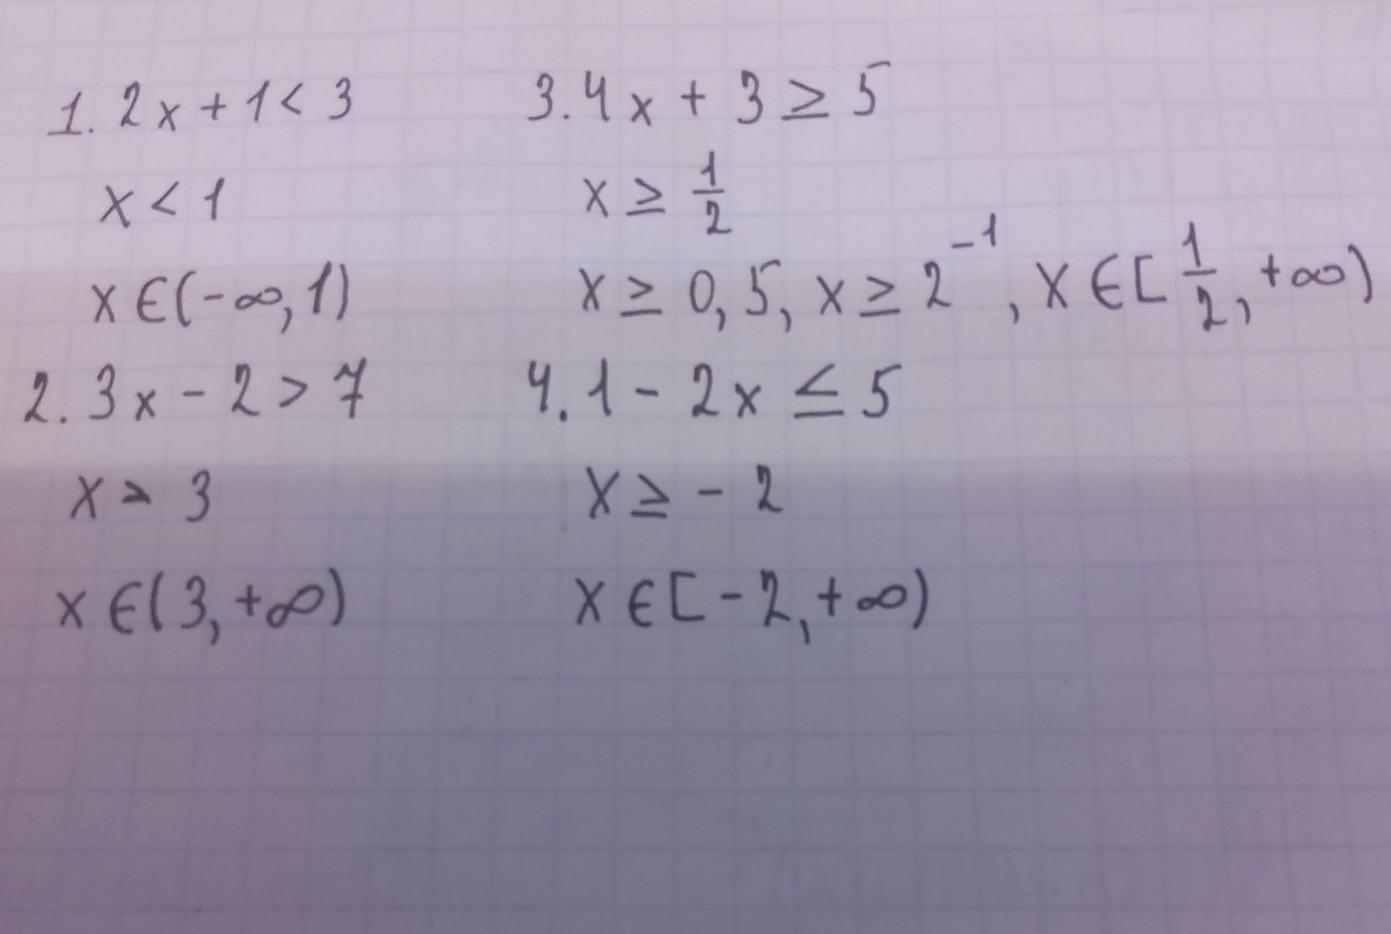 1. 2x + 1 < 3
x < 1
x ∈ (-∞, 1)
2. 3x - 2 > 7
x > 3
x ∈ (3, +∞)
3. 4x + 3 ≥ 5
x ≥ 1/2
x ≥ 0,5, x ≥ 2^-1, x ∈ [1/2, +∞)
4. 1 - 2x ≤ 5
x ≥ -2
x ∈ [-2, +∞)